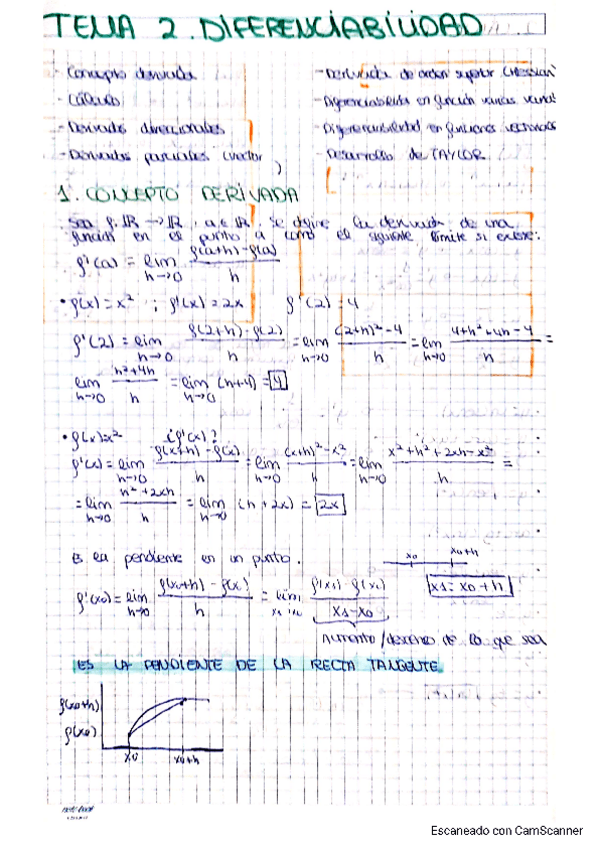 TEMA 2. DIFERENCIABILIDAD
- Concepto derivada
- Cálculo
- Derivadas direccionales
- Derivadas parciales (vector )
- Derivada de orden superior (Hessian)
- Diferenciabilidad en función varias variab
- Diferenciabilidad en funciones vectoriales
- Desarrollo de TAYLOR
1. CONCEPTO DERIVADA
Sea f: IR → IR, a ∈ IR, se define la derivada de una
función en el punto a como el siguiente límite si existe:
f'(a) = lim h→0 f(a+h) - f(a) / h
• f(x) = x² ; f'(x) = 2x f'(2) = 4
f'(2) = lim h→0 f(2+h) - f(2) / h = lim h→0 (2+h)² - 4 / h = lim h→0 4 + h² + 4h - 4 / h =
lim h→0 h² + 4h / h = lim h→0 (h+4) = 4
• f(x) = x² ¿f'(x)?
f'(x) = lim h→0 f(x+h) - f(x) / h = lim h→0 (x+h)² - x² / h = lim h→0 x² + h² + 2xh - x² / h =
= lim h→0 h² + 2xh / h = lim h→0 (h + 2x) = 2x
Es la pendiente en un punto.
x0 x0+h
f'(x0) = lim h→0 f(x0+h) - f(x) / h = lim f(x1) - f(x0) / x1 - x0
x1 = x0 + h
Aumento/descenso de lo que sea
ES LA PENDIENTE DE LA RECTA TANGENTE
f(x0+h)
f(x0)
x0 x0+h
Escaneado con CamScanner